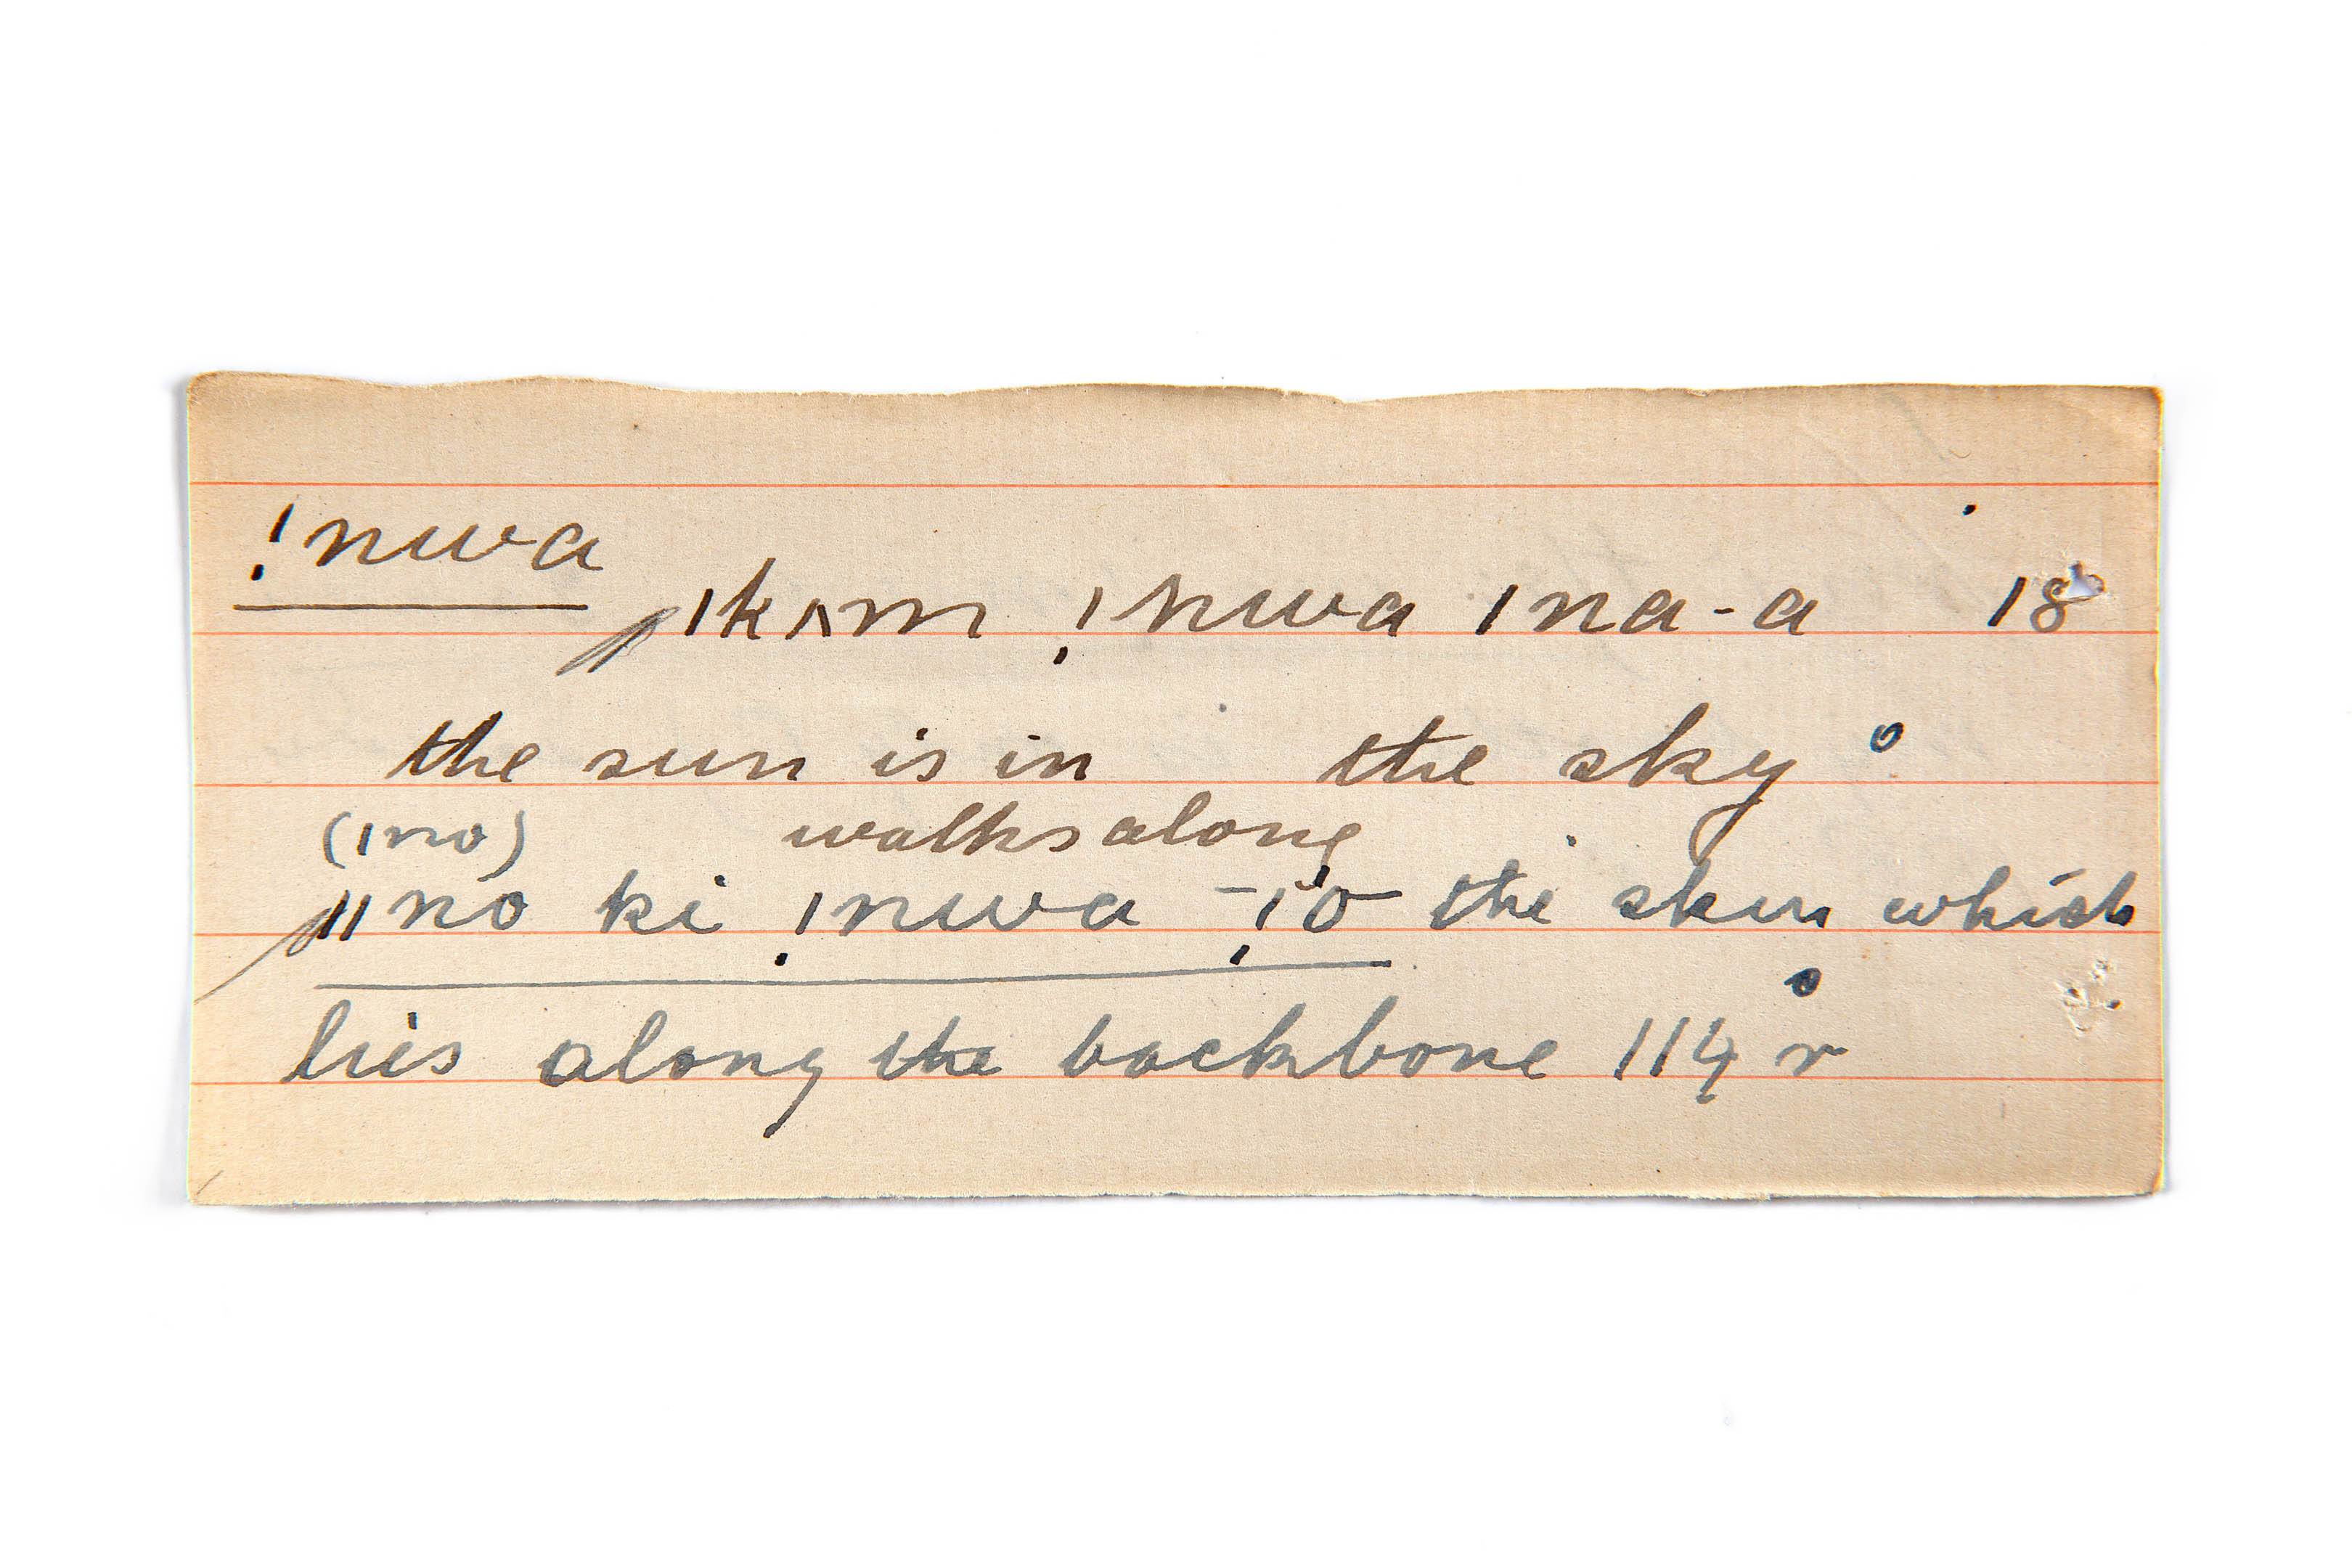 !nwa
|kʌm !nwa |na-a 18
the sun is in the sky
(|no) walks along
||no ki !nwa-!o the skin which
lies along the backbone 114 r